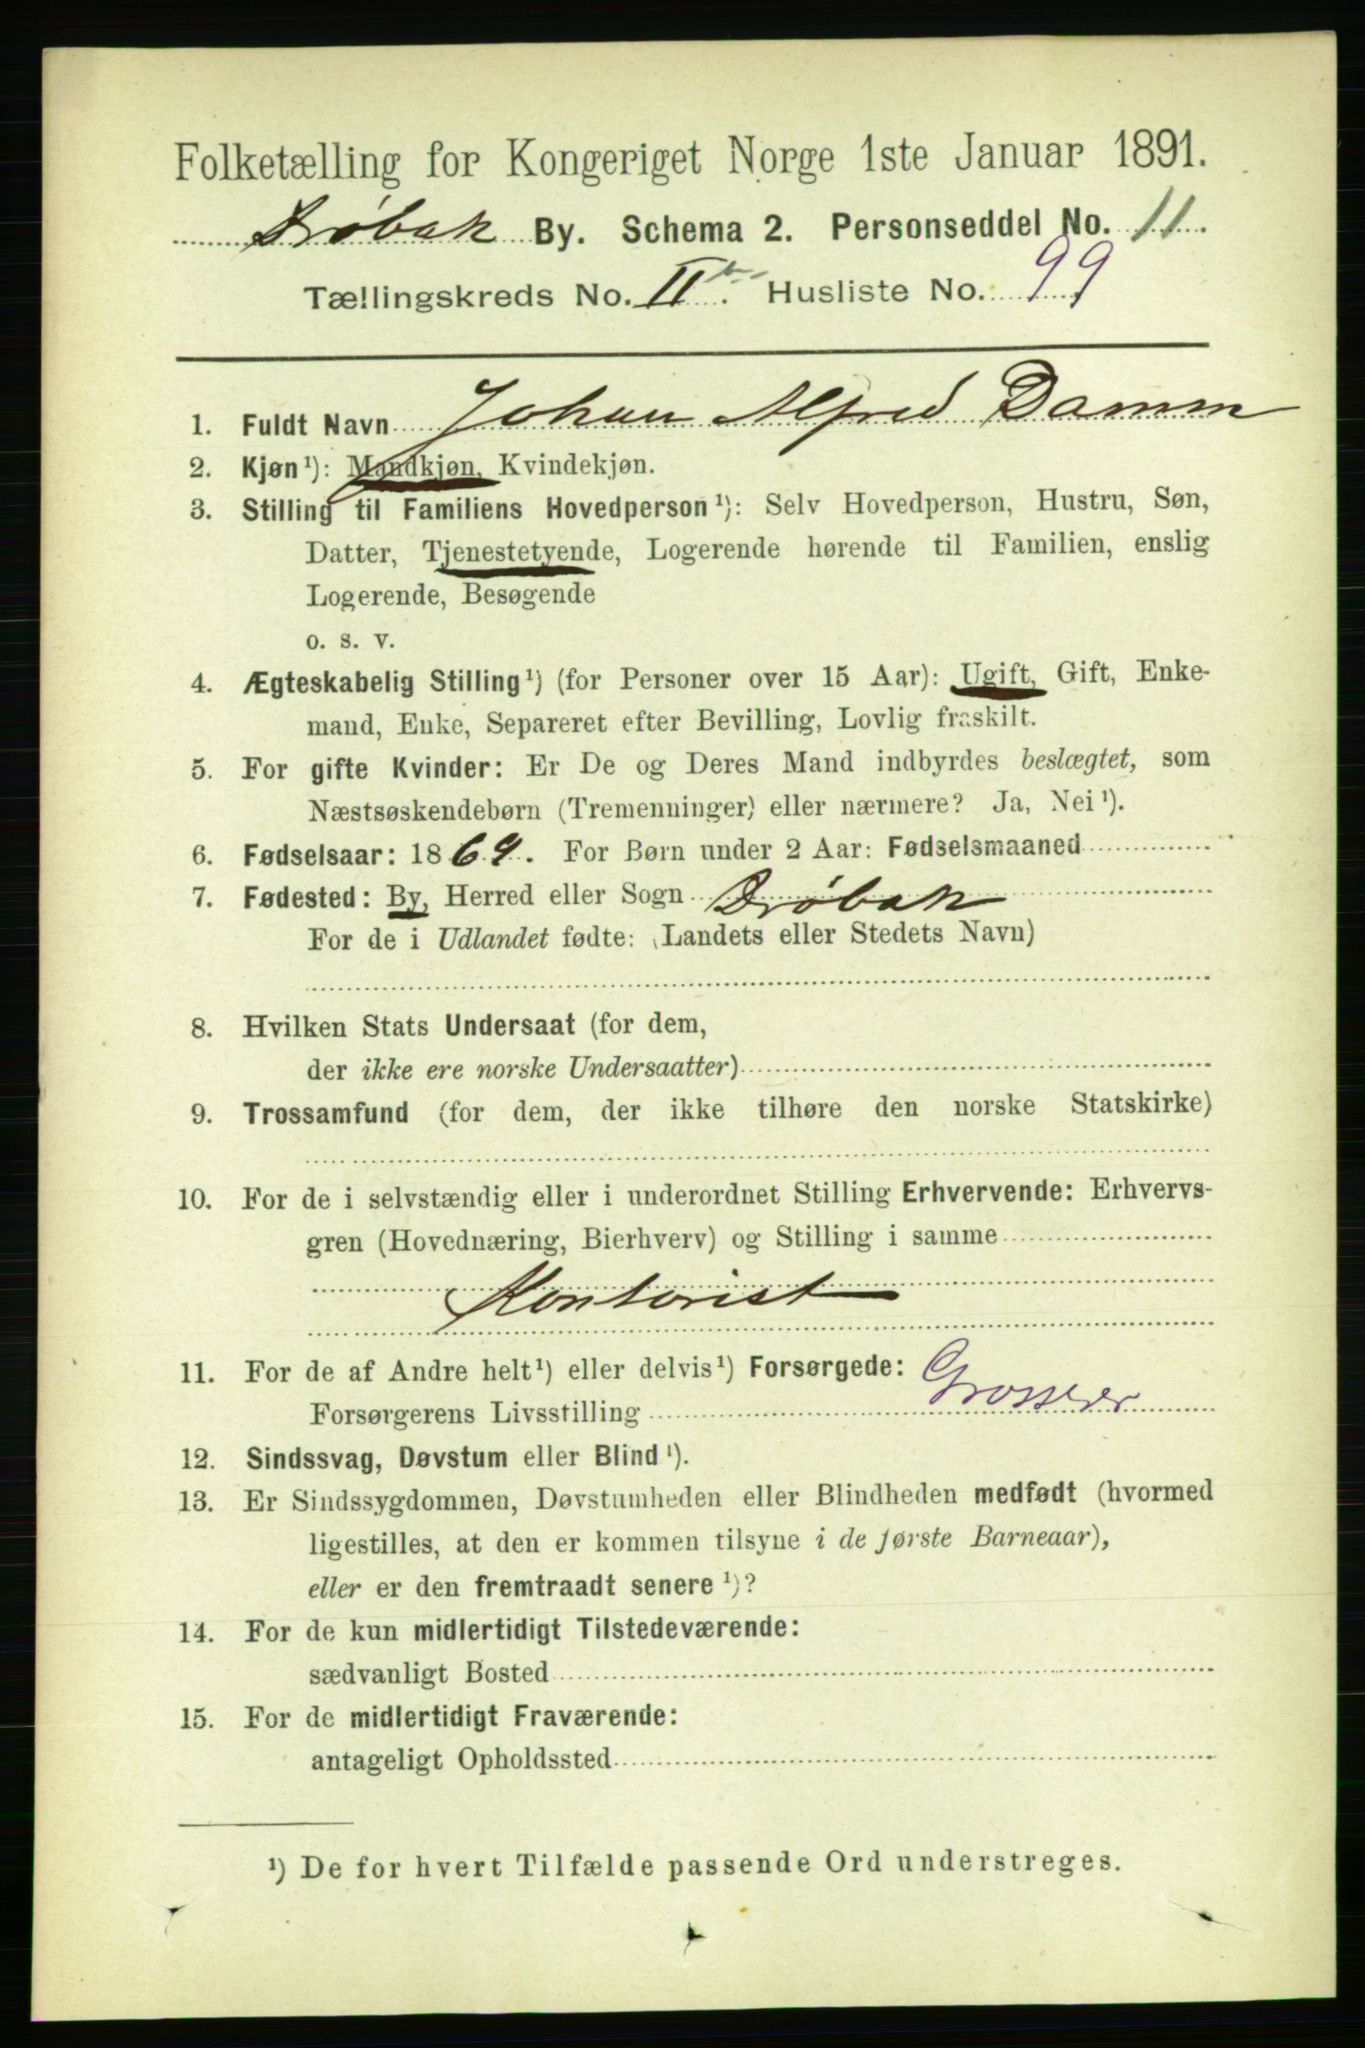 Folketælling for Kongeriget Norge 1ste Januar 1891.
Drøbak By. Schema 2. Personseddel No. 11.
Tællingskreds No. II. Husliste No. 99
1. Fuldt Navn Johan Alfred Damm
2. Kjøn¹): Mandkjøn, Kvindekjøn.
3. Stilling til Familiens Hovedperson¹): Selv Hovedperson, Hustru, Søn,
Datter, Tjenestetyende, Logerende hørende til Familien, enslig
Logerende, Besøgende
o. s. v.
4. Ægteskabelig Stilling¹) (for Personer over 15 Aar): Ugift, Gift, Enke-
mand, Enke, Separeret efter Bevilling, Lovlig fraskilt.
5. For gifte Kvinder: Er De og Deres Mand indbyrdes beslægtet, som
Næstsøskendebørn (Tremenninger) eller nærmere? Ja, Nei¹).
6. Fødselsaar: 1869. For Børn under 2 Aar: Fødselsmaaned
7. Fødested: By, Herred eller Sogn Drøbak
For de i Udlandet fødte: (Landets eller Stedets Navn)
8. Hvilken Stats Undersaat (for dem,
der ikke ere norske Undersaatter)
9. Trossamfund (for dem, der ikke tilhøre den norske Statskirke)
10. For de i selvstændig eller i underordnet Stilling Erhvervende: Erhvervs-
gren (Hovednæring, Bierhverv) og Stilling i samme
Kontorist
11. For de af Andre helt¹) eller delvis¹) Forsørgede:
Forsørgerens Livsstilling Grosserer
12. Sindssvag, Døvstum eller Blind¹).
13. Er Sindssygdommen, Døvstumheden eller Blindheden medfødt (hvormed
ligestilles, at den er kommen tilsyne i de første Barneaar),
eller er den fremtraadt senere¹)?
14. For de kun midlertidigt Tilstedeværende:
sædvanligt Bosted
15. For de midlertidigt Fraværende:
antageligt Opholdssted
¹) De for hvert Tilfælde passende Ord understreges.